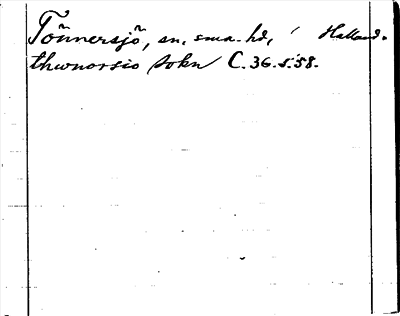 Tönnersjö, sn, sma. hd, Halland.
thwnorsio sokn C. 36. s. 58.